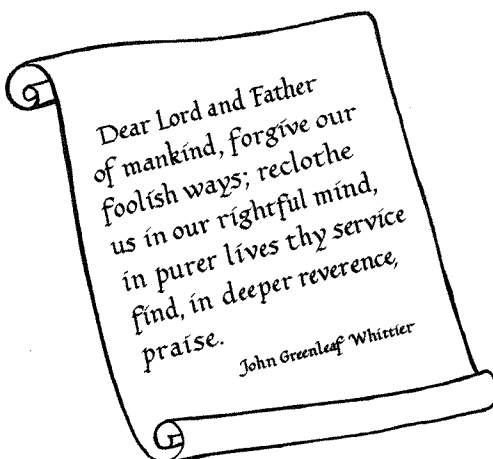 Dear Lord and Father
of mankind, forgive our
foolish ways; reclothe
us in our rightful mind,
in purer lives thy service
find, in deeper reverence,
praise.
John Greenleaf Whittier